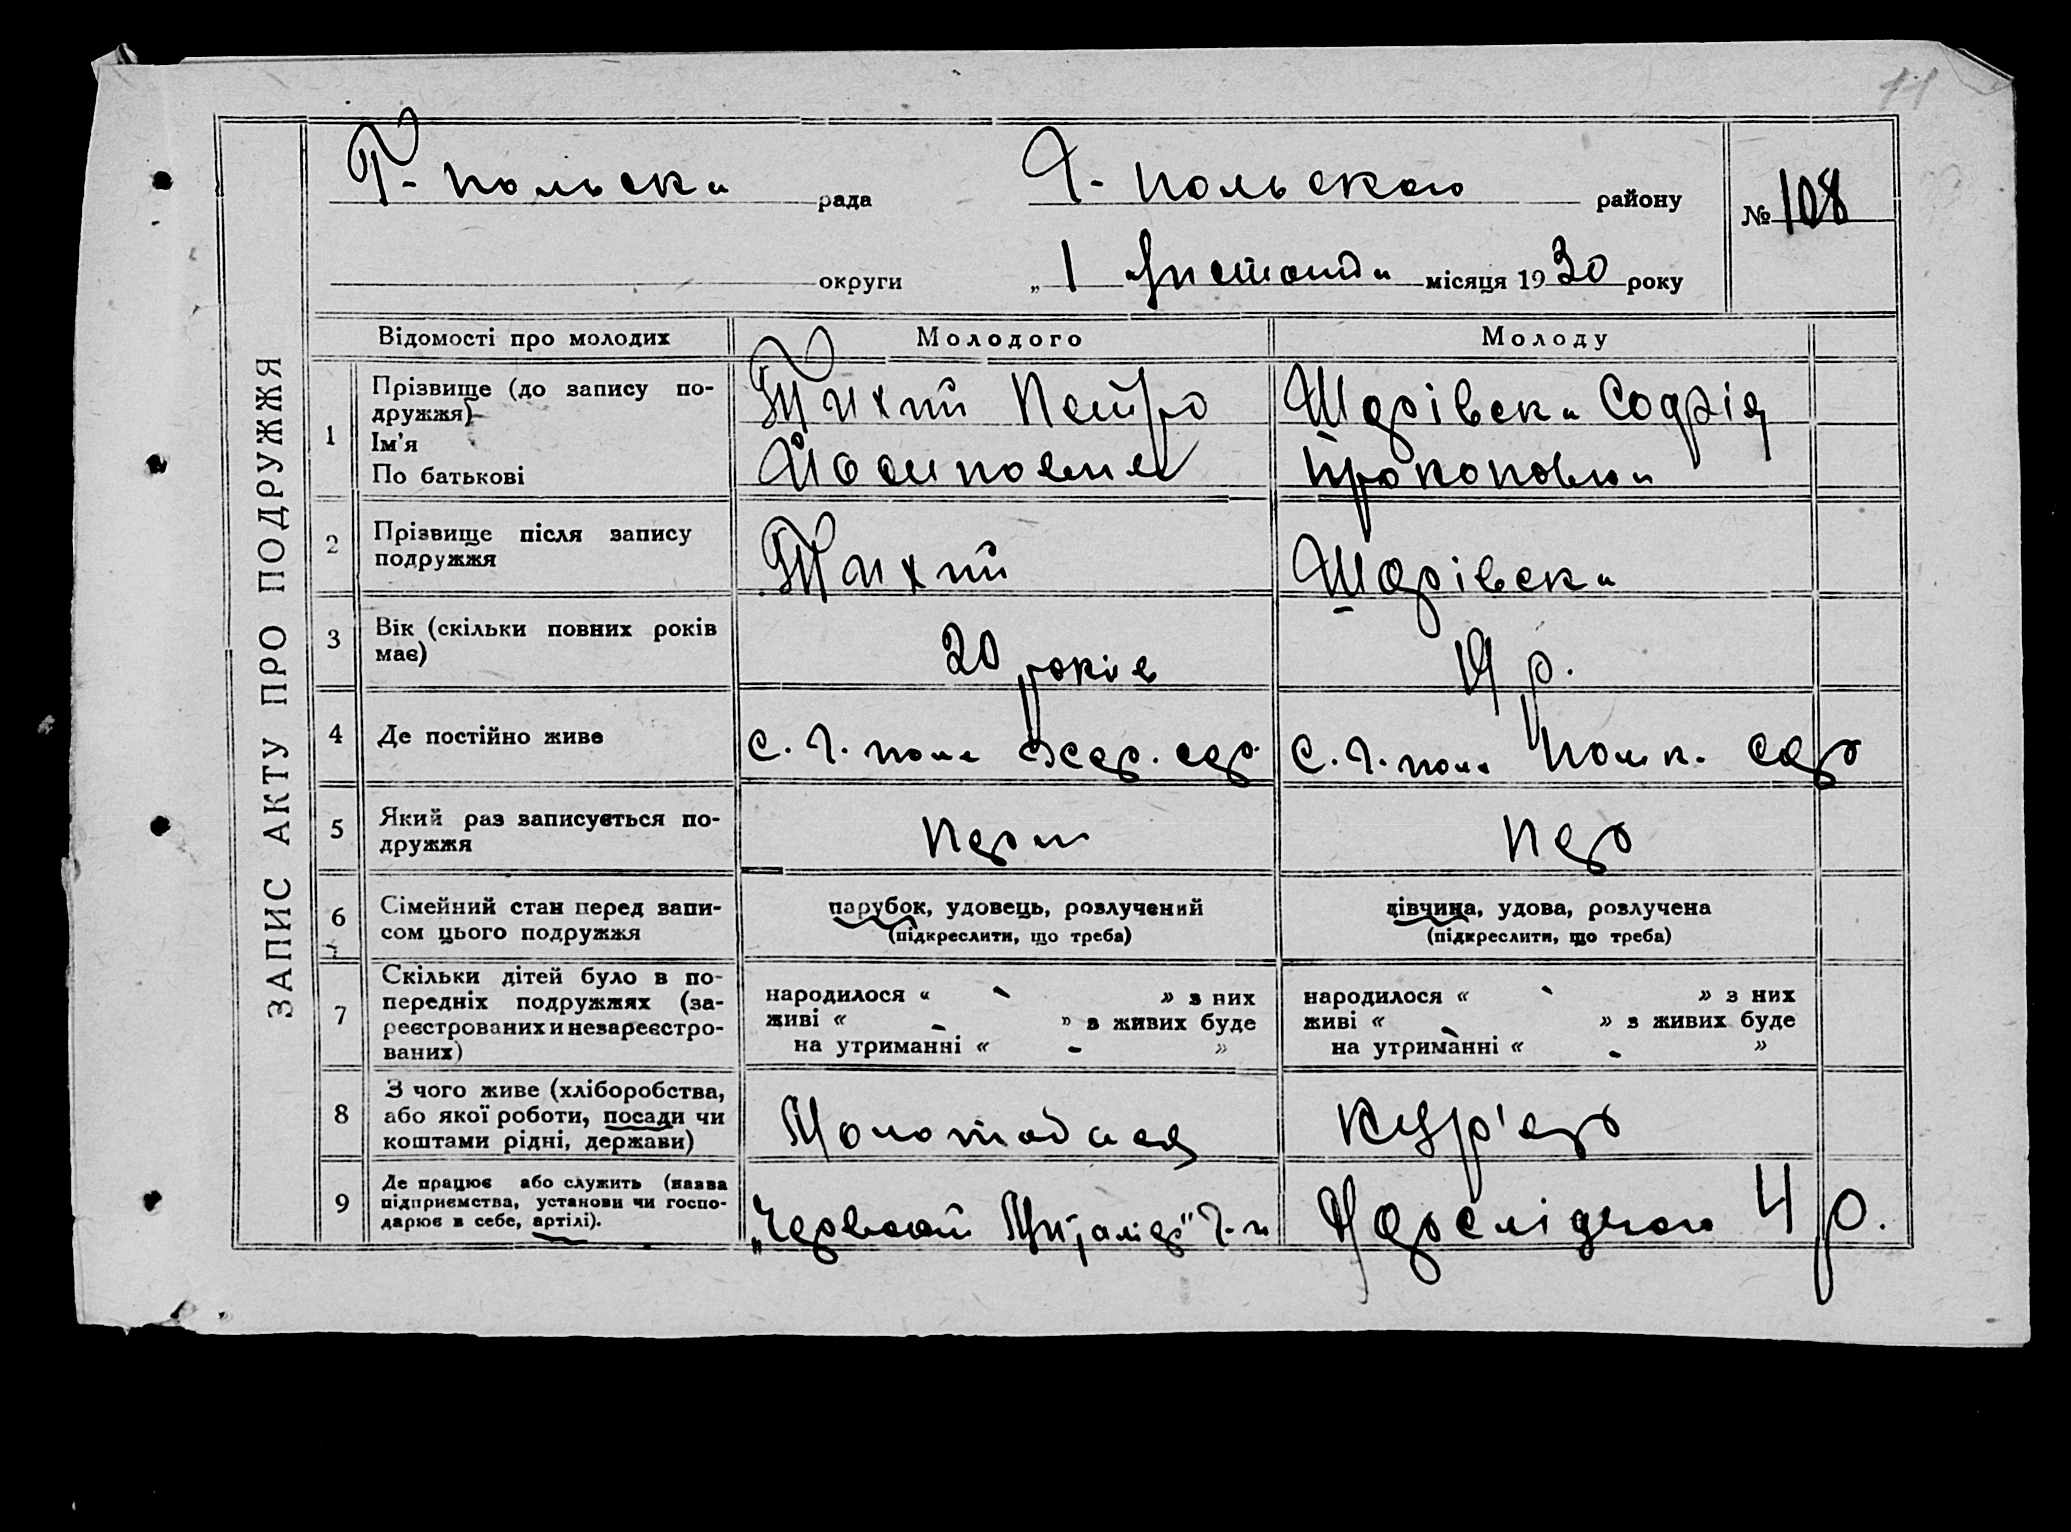 11
Г-польска рада Г-польского району № 108
округи „ 1 листопада місяця 1930 року
ЗАПИС АКТУ ПРО ПОДРУЖЖЯ
Відомості про молодих Молодого Молоду
1 Прізвище (до запису по-
дружжя)
Ім'я
По батькові
Тихий Петро
Йосипович
Шарівска Софія
Прокоповна
2 Прізвище після запису
подружжя
Тихий
Шарівска
3 Вік (скільки повних років
має)
20 років
19 р.
4 Де постійно живе
с. Г. поле
с. Г. поле
5 Який раз записується по-
дружжя
перш
пер
6 Сімейний стан перед запи-
сом цього подружжя
парубок, удовець, розлучений
(підкреслити, що треба)
дівчина, удова, розлучена
(підкреслити, що треба)
7 Скільки дітей було в по-
передніх подружжях (за-
реєстрованих и незареєстро-
ваних)
народилося « - » з них
живі « - » з живих буде
на утриманні « - »
народилося « - » з них
живі « - » з живих буде
на утриманні « - »
8 З чого живе (хліборобства,
або якої роботи, посади чи
коштами рідні, держави)
Кур'єр
9 Де працює або служить (назва
підприємства, установи чи госпо-
дарює в себе, артілі).
„Червоний Г-п
4 р.